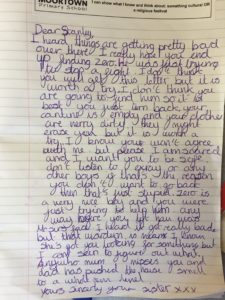 MOORTOWN
Primary School
I can show what I know and think about: something cultural OR
a religious festival
Dear Stanley,
I heard things are getting pretty bad
over there. I really hope you end
up finding zero. He was just trying
to stop a fight. I don't think
you will get this letter but it is
worth a try. I don't think you
are going to find him so it is
best you just turn back your
canteen is empty and your clothes
are very dirty. they might
erase you but it is worth a
try. I know you won't agree
with me but please I am scared
and I want you to be safe
don't listen to any of any
other boys if that's the reason
you don't want to go back
then that's just stupid. Zero is
a very nice boy and you were
just trying to help him any
way
it got really bad
but that warden is mean. I knew
she's got you looking for something but
I can't seem to figure out what.
Anywhen mum misses you and
dad has the house smell
to a what ever level.
Yours sincerly your sister xxx